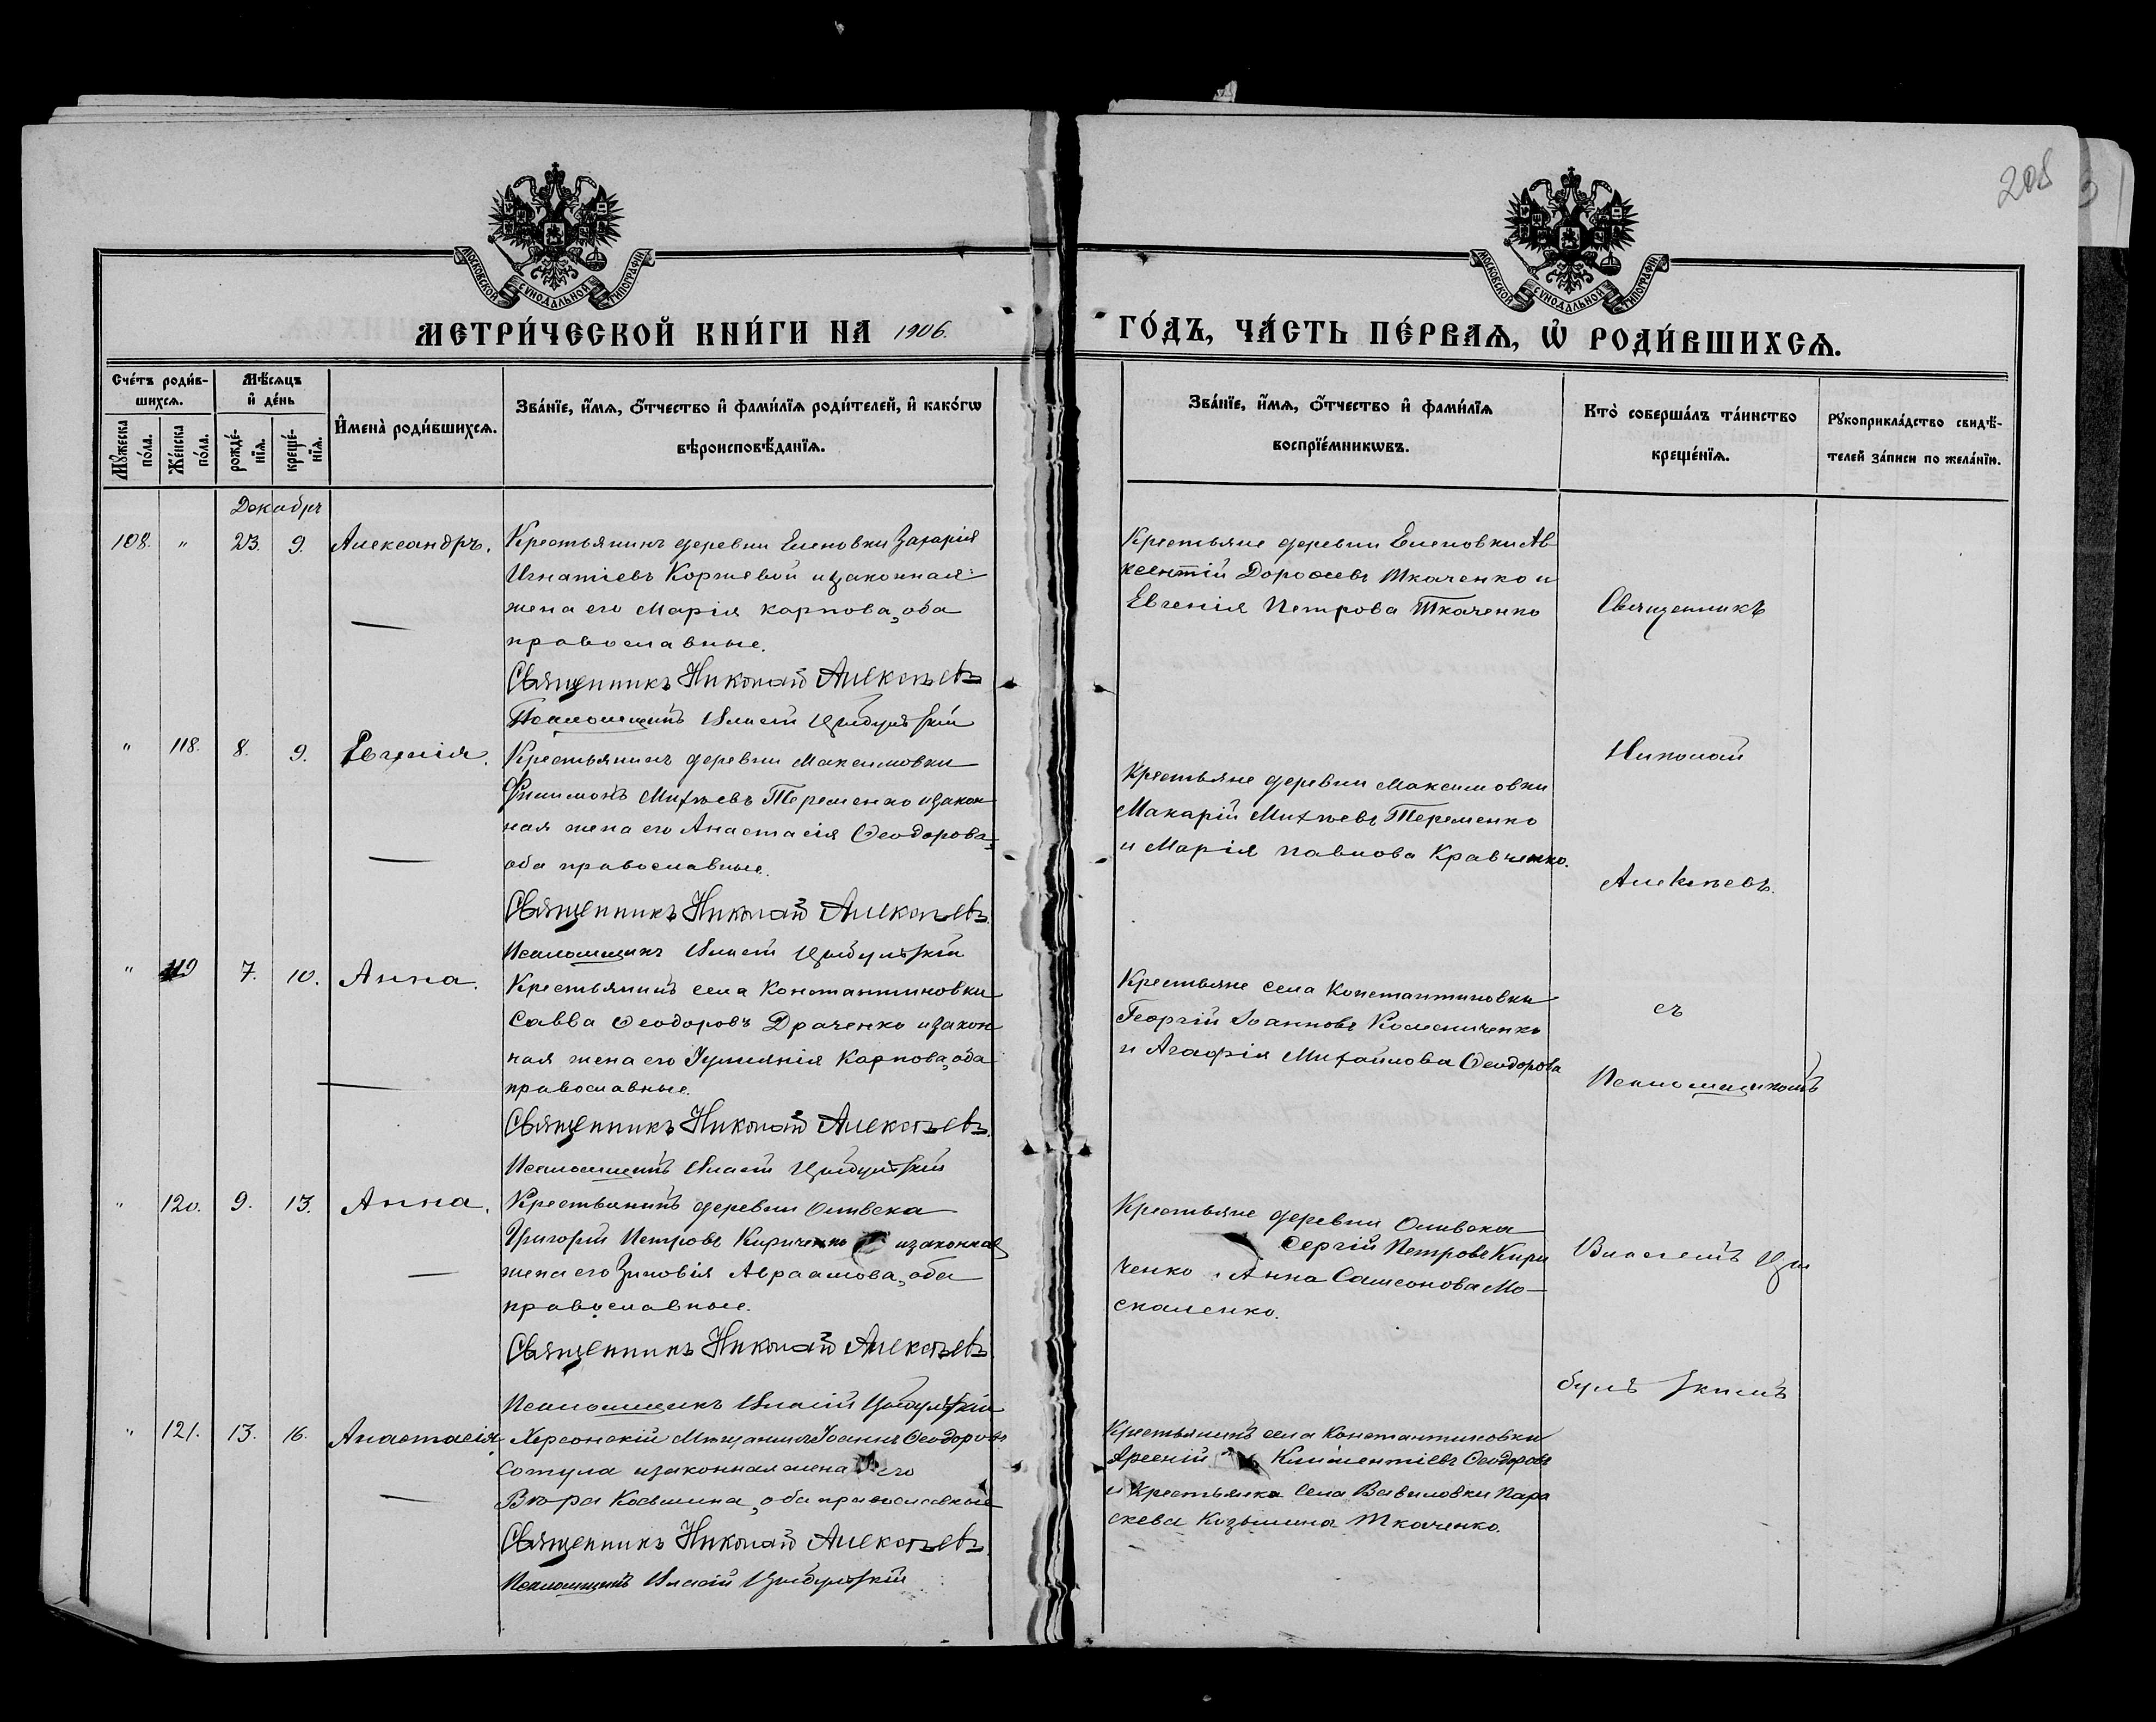 208
МОСКОВСКОЙ СѴНОДАЛЬНОЙ ТИПОГРАФІИ
МОСКОВСКОЙ СѴНОДАЛЬНОЙ ТИПОГРАФІИ
МЕТРИ́ЧЕСКОЙ КНИ́ГИ НА 1906.
ГО́ДЪ, ЧА́СТЬ ПЕ́РВАѦ, Ѡ҆ РОДИ́ВШИХСѦ.
Сче́тъ роди́в-
шихсѧ.
Мѣ́сѧцъ
и҆ де́нь
Му́жеска
по́ла.
Же́нска
по́ла.
рожде́-
нїѧ.
креще́-
нїѧ.
И҆мена̀ роди́вшихсѧ.
Зва́нїе, и҆́мѧ, ѻ҆́тчество и҆ фами́лїѧ роди́телей, и҆ како́гѡ
вѣроисповѣ́данїѧ.
Зва́нїе, и҆́мѧ, ѻ҆́тчество и҆ фами́лїѧ
воспрїе́мникѡвъ.
Кто̀ соверша́лъ та́инство
креще́нїѧ.
Рꙋкоприкла́дство свидѣ́-
телей за́писи по жела́нїю.
Декабрь
108. " 23. 9. Александръ.
Крестьянинъ деревни Еленовки Захарія
Игнатіевъ Коржевой и законная
жена его Марія Карпова, оба
православные.
Священникъ Николай Алексѣевъ
Псаломщикъ Власій Цыбульскій
Крестьяне деревни Еленовки Ав-
ксентій Дороѳеевъ Ткаченко и
Евгенія Петрова Ткаченко
" 118. 8. 9. Евгенія.
Крестьянинъ деревни Максимовки
Филимонъ Михѣевъ Теременко и закон
ная жена его Анастасія Ѳеодорова,
оба православные.
Священникъ Николай Алексѣевъ.
Псаломщикъ Власій Цыбульскій
Крестьяне деревни Максимовки
Макарій Михѣевъ Теременко
и Марія Павлова Кравченко.
" 119 7. 10. Анна.
Крестьянинъ села Константиновки
Савва Ѳеодоровъ Драченко и закон
ная жена его Іуліанія Карпова, оба
православные.
Священникъ Николай Алексѣевъ.
Псаломщикъ Власій Цыбульскій
Крестьяне села Константиновки
Георгій Іоанновъ
и Агафія Михайлова Ѳеодорова
" 120. 9. 13. Анна.
Крестьянинъ деревни
Григорій Петровъ Кириченко и законная
жена его Зиновія Авраамова, оба
православные.
Священникъ Николай Алексѣевъ
Псаломщикъ Власій Цыбульскій
Крестьяне деревни
Сергій Петровъ Кири
ченко Анна Самсонова Мо-
скаленко.
" 121. 13. 16. Анастасія
Херсонскій Мѣщанинъ Іоаннъ Ѳеодоровъ
Сотула и законная жена его
Вѣра Косьмина, оба православные
Священникъ Николай Алексѣевъ.
Псаломщикъ Власій Цыбульскій
Крестьянинъ села Константиновки
Арсеній Климентіевъ Ѳеодоровъ
и Крестьянка села Вавиловки Пара
скева Козьмина Ткаченко.
Священникъ
Николай
Алексѣевъ.
съ
Псаломщикомъ
Власіемъ Цы
бульскимъ